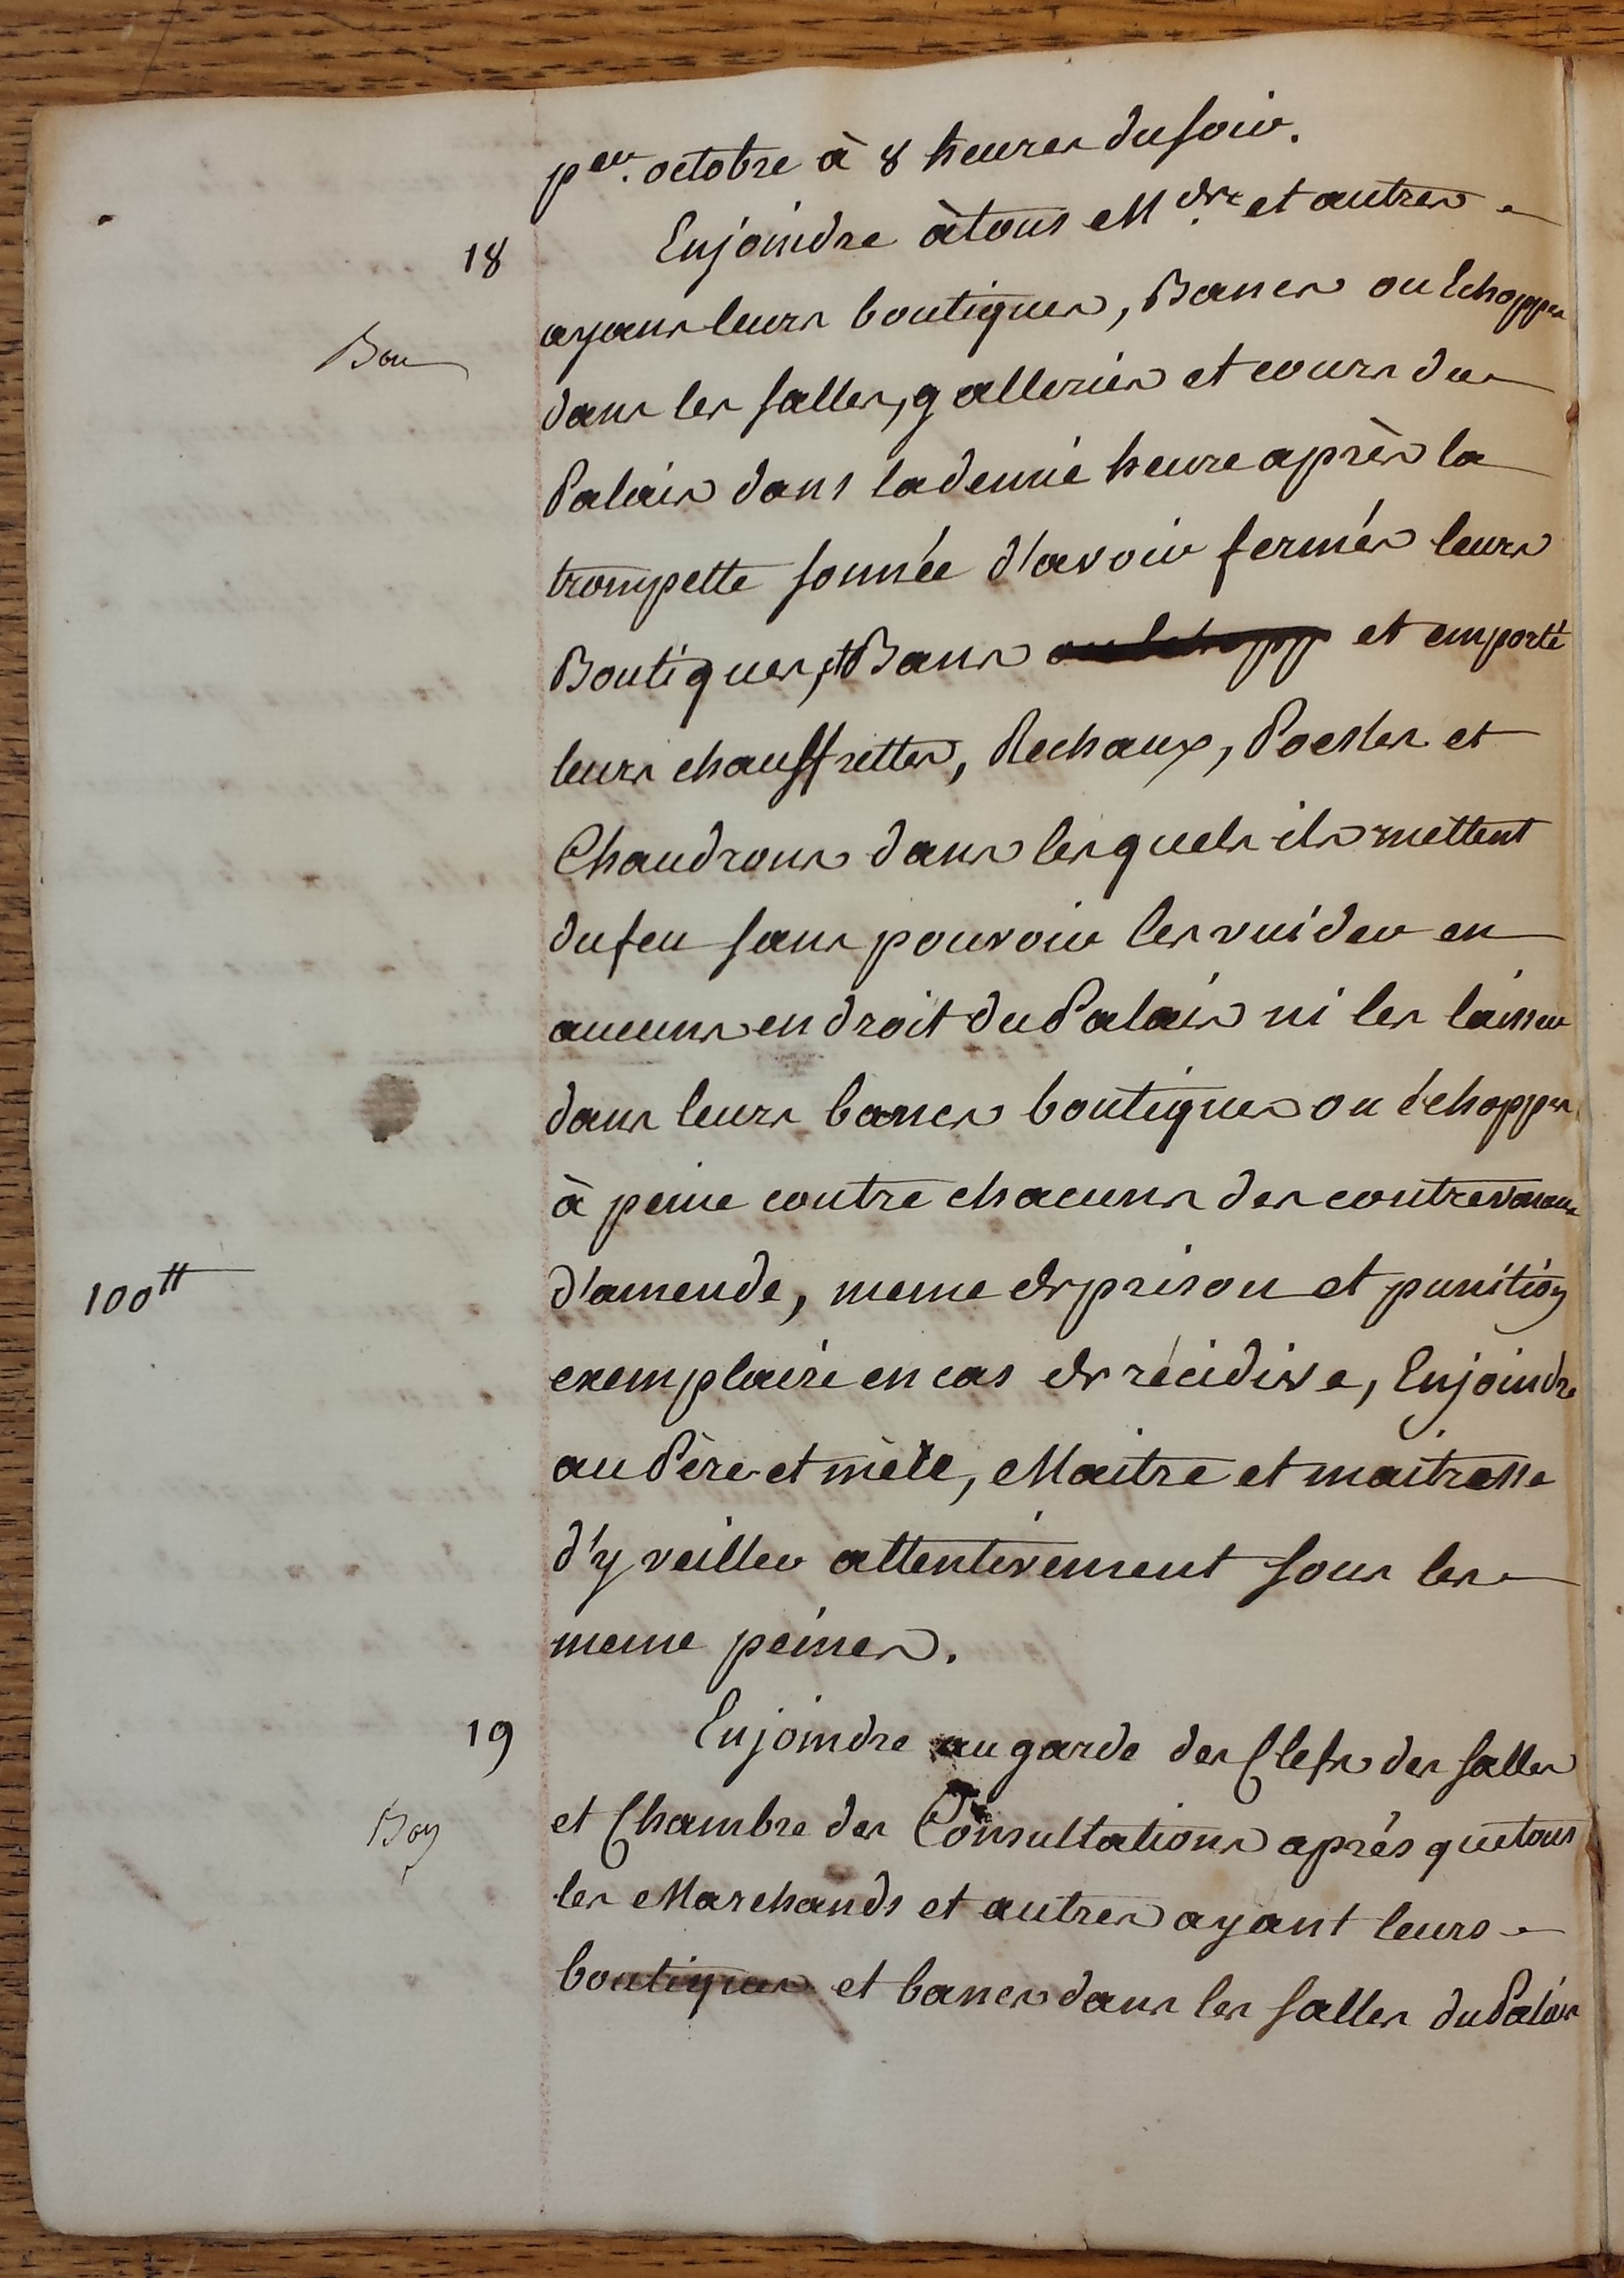 per. octobre à 8 heures du soir.
18
Enjoindre à tous Mds. et autres
ayans leurs boutiques, Bancs ou Echoppes
Bon
dans les salles, galleries et cours du
Palais dans la demie heure après la
trompette sonnée d'avoir fermés leurs
Boutiques, et Bans ou Echopp et emporté
leurs chauffrettes, Rechaux, Poesles et
Chaudrons dans lesquels ils mettent
du feu sans pouvoir les vuider en
aucuns endroit du Palais ni les laisser
dans leurs bancs boutiques ou échoppes
à peine contre chacuns des contrevenans
100tt
d'amende, meme de prison et punition
exemplaire en cas de récidive, Enjoindre
au Père et mère, Maitre et maitresse
d'y veiller attentivement sous les
meme peines.
19
Enjoindre au garde des Clefs des salles
et Chambre des Consultations après que tous
Bon
les Marchands et autres ayant leurs
boutiques et bancs dans les salles du Palais